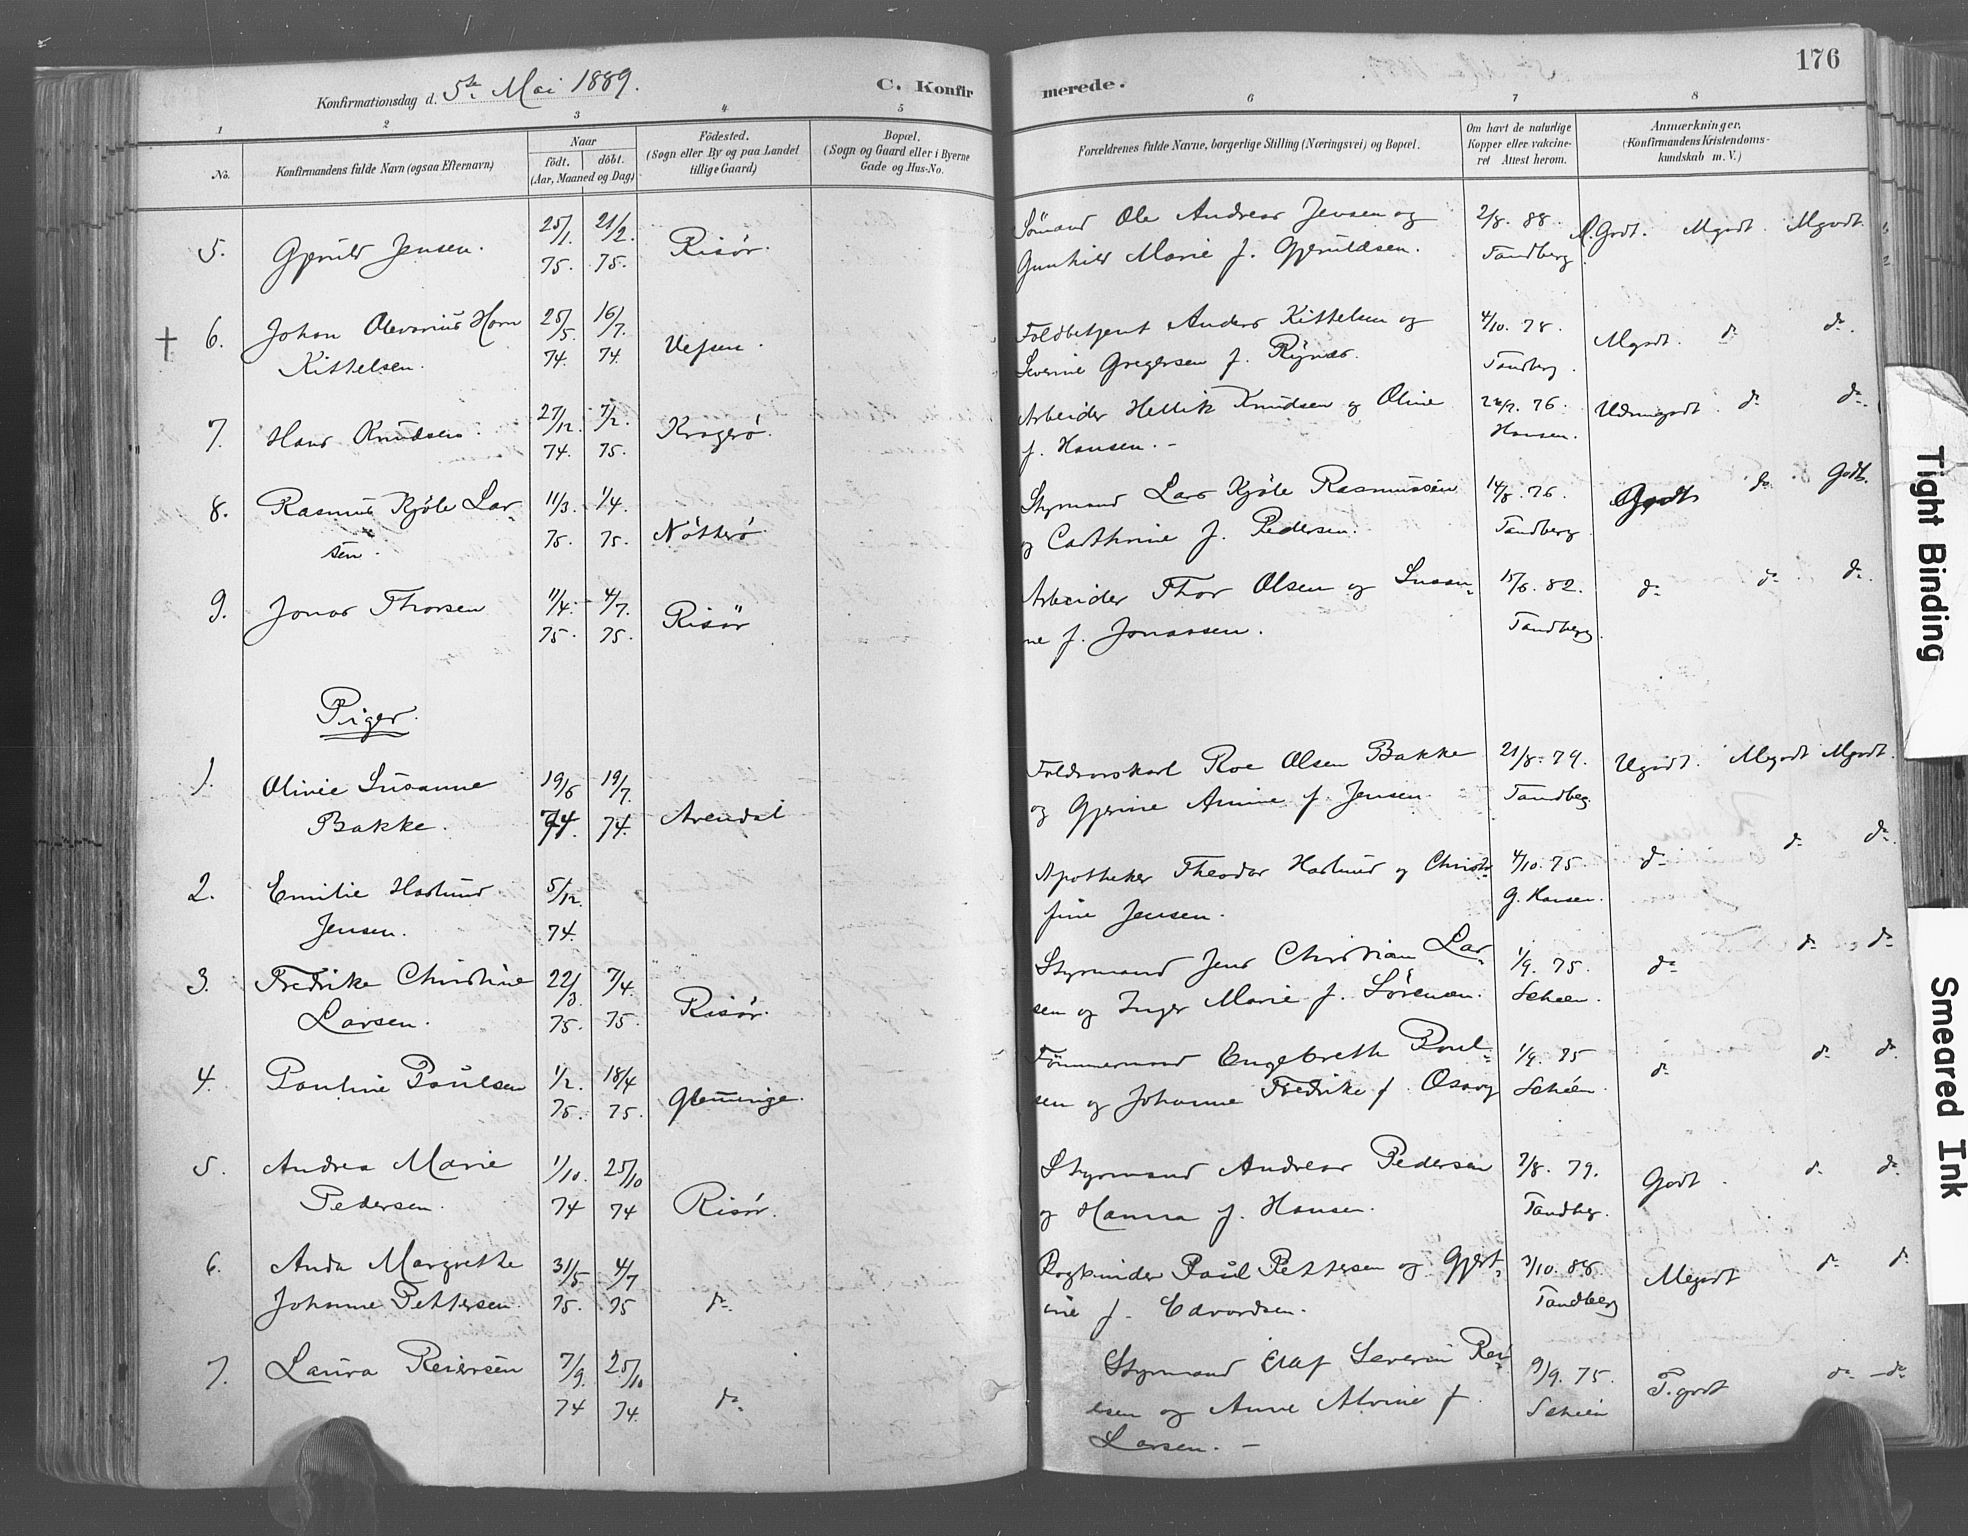 176
Konfirmationsdag d. 5te Mai 1889.
C. Konfirmerede.
1 2 3 4 5 6 7 8
No.
Konfirmandens fulde Navn (ogsaa Efternavn)
Naar
født. døbt.
(Aar, Maaned og Dag)
Fødested.
(Sogn eller By og paa Landet
tillige Gaard)
Bopæl.
(Sogn og Gaard eller i Byerne
Gade og Hus-No.
Forældrenes fulde Navne, borgerlige Stilling (Næringsvei) og Bopæl.
Om havt de naturlige
Kopper eller vakcine-
ret Attest herom.
Anmærkninger.
(Konfirmandens Kristendoms-
kundskab m. V.)
5. Gjeruld Jensen. 25/1. 75. 21/2. 75. Risør.
Sömand Ole Andreas Jensen og
Gunhild Marie f. Gjeruldsen.
2/8. 88. Tandberg
M. Godt. Mgodt. Mgodt.
† 6. Johan Olevarius Horn
Kittelsen. 25/5. 74. 16/7. 74 Vefsen.
Toldbetjent Anders Kittelsen og
Severine Gregersen f.
4/10. 78. Tandberg.
Mgodt. do do.
7. Hans Knudsen. 27/12. 74. 7/2. 75. Kragerø.
Arbeider Hellik Knudsen og Oline
f. Hansen. -
76. Hansen.
Udmgodt. do do
8. Rasmus Kjöle Lar-
sen. 11/3. 75. 1/4. 75. Nötterö
Styrmand Lars Kjöle Rasmussen
og Cathrine f. Pedersen.
14/8. 76. Tandberg
Godt do Godt.
9. Jonas Thorsen 11/4. 75. 4/7. 75. Risör
Arbeider Thor Olsen og Susan-
ne f. Jonassen.
15/6. 82. Tandberg.
do do do.
Piger.
1. Olivie Susanne
Bakke. 19/6 74. 19/7. 74. Arendal
Roe Olsen Bakke
og Gjerine Annie f. Jensen.
21/8. 79. Tandbeg.
Ugodt. Megodt Mgodt.
2. Emilie Haslund
Jensen. 5/12. 74.
Apotheker Theodor Haslund og Christi-
fine Jensen.
4/10. 75 G. Hansen.
do do do
3. Fredrike Christine
Larsen. 22/3. 75. 7/4. 75. Risør.
Styrmand Jens Christian Lar-
sen og Inger Marie f. Sörensen.
1/9. 75. Schéen.
do do do
4. Pauline Paulsen 1/2. 75. 18/4 75. Glemminge.
Tömmermand Engebreth Poul-
sen og Johanne Fredrike f.
1/9. 75 Schéen.
do do do
5. Andrea Marie
Pedersen. 1/10. 74 25/10 74 Risør.
Styrmand Andreas Pedersen
og Hanna f. Hansen.
7/8. 79. Tandberg.
Godt. do do
6. Anda Margrethe
Johanne Pettersen. 31/5 75. 4/7 75 do
Paul Pettersen og Gjert-
ine f. Edvardsen.
3/10. 88. Tandberg
Megodt do do
7. Laura Reiersen 7/9. 74 25/10 74. do
Styrmand Olaf Severin Rei-
ersen og Anne Alvine f.
Larsen. -
9/9. 75. Schéen
T.godt do do
Tight Binding
Smeared Ink